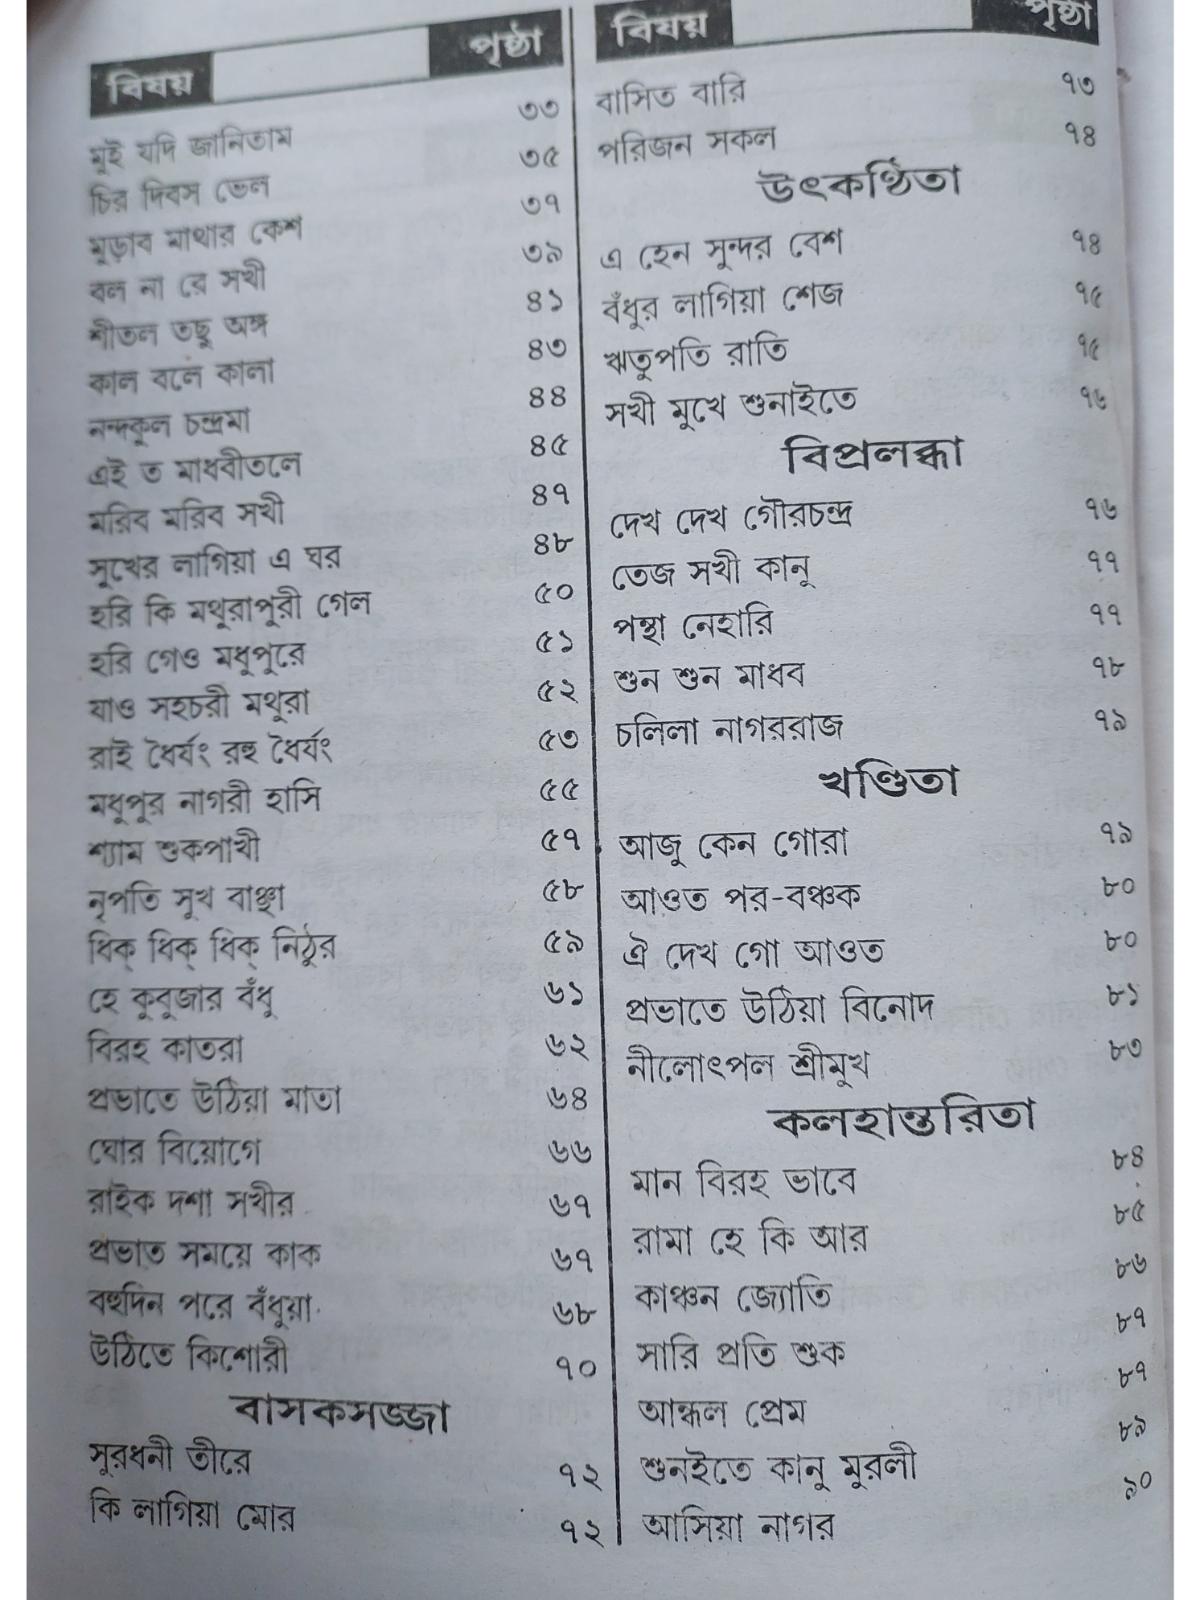 বিষয় পৃষ্ঠা
মুই যদি জানিতাম ৩৩
চির দিবস ভেল ৩৫
মুড়াব মাথার কেশ ৩৭
বল না রে সখী ৩৯
শীতল তছু অঙ্গ ৪১
কাল বলে কালা ৪৩
নন্দকুল চন্দ্রমা ৪৪
এই ত মাধবীতলে ৪৫
মরিব মরিব সখী ৪৭
সুখের লাগিয়া এ ঘর ৪৮
হরি কি মথুরাপুরী গেল ৫০
হরি গেও মধুপুরে ৫১
যাও সহচরী মথুরা ৫২
রাই ধৈর্যং রহু ধৈর্যং ৫৩
মধুপুর নাগরী হাসি ৫৫
শ্যাম শুকপাখী ৫৭
নৃপতি সুখ বাঞ্ছা ৫৮
ধিক্ ধিক্ ধিক্ নিঠুর ৫৯
হে কুবুজার বঁধু ৬১
বিরহ কাতরা ৬২
প্রভাতে উঠিয়া মাতা ৬৪
ঘোর বিয়োগে ৬৬
রাইক দশা সখীর ৬৭
প্রভাত সময়ে কাক ৬৭
বহুদিন পরে বঁধুয়া ৬৮
উঠিতে কিশোরী ৭০
বাসকসজ্জা
সুরধনী তীরে ৭২
কি লাগিয়া মোর ৭২
বিষয় পৃষ্ঠা
বাসিত বারি ৭৩
পরিজন সকল ৭৪
উৎকণ্ঠিতা
এ হেন সুন্দর বেশ ৭৪
বঁধুর লাগিয়া শেজ ৭৫
ঋতুপতি রাতি ৭৫
সখী মুখে শুনাইতে ৭৬
বিপ্রলব্ধা
দেখ দেখ গৌরচন্দ্র ৭৬
তেজ সখী কানু ৭৭
পন্থা নেহারি ৭৭
শুন শুন মাধব ৭৮
চলিলা নাগররাজ ৭৯
খণ্ডিতা
আজু কেন গোরা ৭৯
আওত পর-বঞ্চক ৮০
ঐ দেখ গো আওত ৮০
প্রভাতে উঠিয়া বিনোদ ৮১
নীলোৎপল শ্রীমুখ ৮৩
কলহান্তরিতা
মান বিরহ ভাবে ৮৪
রামা হে কি আর ৮৫
কাঞ্চন জ্যোতি ৮৬
সারি প্রতি শুক ৮৭
আন্ধল প্রেম ৮৭
শুনইতে কানু মুরলী ৮৯
আসিয়া নাগর ৯০